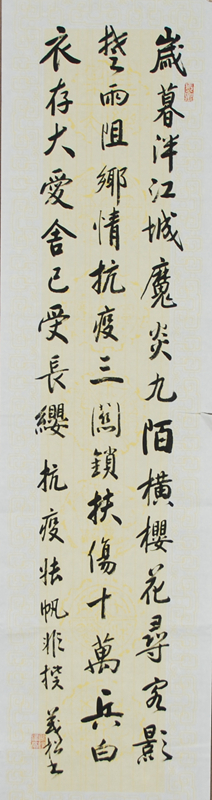 歲暮泮江城魔炎九陌橫櫻花尋客影
楚雨阻鄉情抗疫三關鎖扶傷十萬兵白
衣存大愛舍己受長纓 抗疫 帆非 義